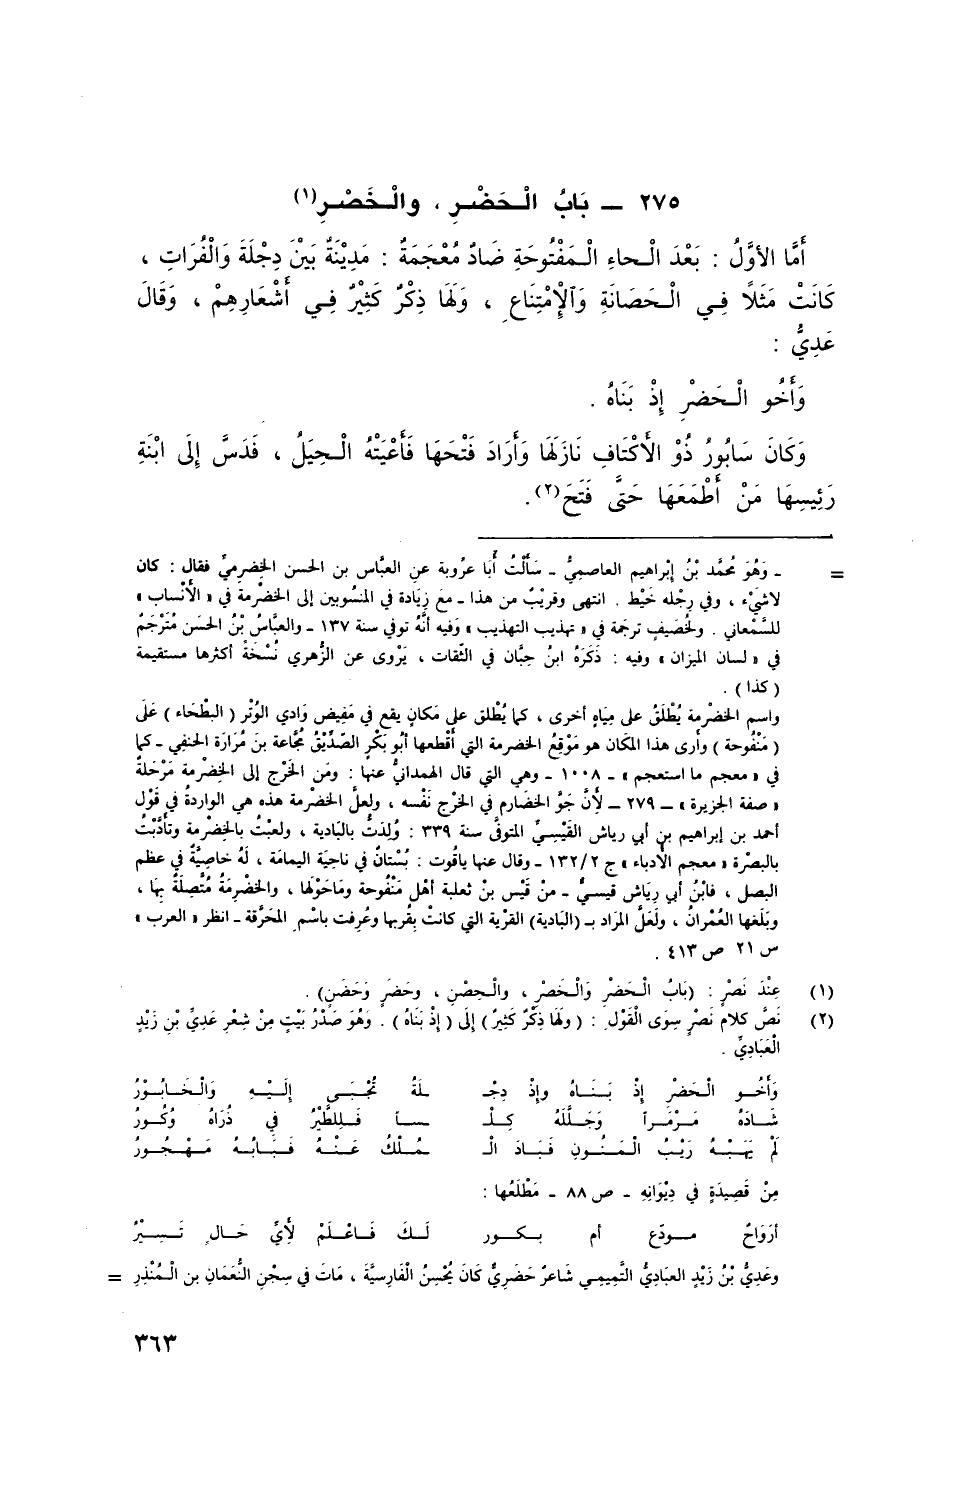 ٢٧٥ ــ بَابُ الْـحَضْـرِ ، والْـخَصْـرِ(١)
أَمَّا الأوَّلُ : بَعْدَ الْـحاءِ الْـمَفْتُوحَةِ ضَادٌ مُعْجَمَةٌ : مَدِيْنَةٌ بَيْنَ دِجْلَةَ وَالْفُرَاتِ ،
كَانَتْ مَثَلًا فِـي الْـحَصَانَةِ وَالْإِمْتِنَاعِ ، وَلَهَا ذِكْرٌ كَثِيْرٌ فِـي أَشْعَارِهِمْ ، وَقَالَ
عَدِيٌّ :
وَأَخُو الْـحَضْرِ إِذْ بَنَاهُ .
وَكَانَ سَابُورُ ذُوْ الأَكْتَافِ نَازَلَهَا وَأَرَادَ فَتْحَهَا فَأَعْيَتْهُ الْـحِيَلُ ، فَدَسَّ إِلَى ابْنَةِ
رَئِيسِهَا مَنْ أَطْمَعَهَا حَتَّى فَتَحَ(٢).
= ـ وَهُوَ مُحَمَّد بْنُ إِبْراهيم العاصميُّ ـ سَأَلْتُ أَبا عَرُوبة عن العبَّاس بن الحسن الخِضرميِّ فقال : كان
لاشَيْء ، وفي رِجْله خَيْط . انتهى وقريْبٌ من هذا ـ مع زيَادة في المنْسُوبين إلى الخضْرمة في « الأنْساب »
للسَّمْعاني . ولخُصَيفٍ ترجمة في « تهذيب التهذيب » وَفيه أنَّهُ توفي سنة ١٣٧ ـ والعبَّاسُ بْنُ الحسَن مُتَرْجَمٌ
في « لسان الميزان » وفيه : ذَكَرَهُ ابنُ حِبَّان في الثّقات ، يَرْوى عن الزُّهري نُسْخَةً أكثرها مستقيمة
( كذا ) .
واسم الخضْرمة يُطْلَقُ على مِيَاهٍ أخرى ، كما يُطْلق على مكان يقع في مَفِيض وَادي الوُتْر ( البطْحاء ) عَلَى
( مَنْفُوحة ) وأرى هذا المكان هو مَوْقِعُ الخضرمة التي أقْطعها أبُو بَكْرٍ الصّدّيْقُ مُجَّاعة بنَ مُرَارَة الحنفي ـ كما
في « معجم ما استعجم » ـ ١٠٠٨ ـ وهي التي قال الهمدانيُّ عنها : ومَن الخَرْج إلى الخِضْرمة مَرْحَلةٌ
« صفة الجزيرة » ــ ٢٧٩ ــ لأنَّ جَوَّ الخضَارم في الخَرْج نَفْسه ، ولعلَّ الخضْرمة هذه هي الواردةُ في قَوْل
أحمد بن إبراهيم بن أبي رياش القَيْسيِّ المتوفَّى سنة ٣٣٩ : وُلِدْتُ بالبَادية ، ولعبْتُ بالخضْرمة وتأدَّبْتُ
بالبصْرة « معجم الأُدباء » ج ١٣٢/٢ ـ وقال عنها ياقُوت : بُسْتانٌ في ناحيَة اليمامَة ، لَهُ خاصيَّةٌ في عظم
البصل ، فابْنُ أبي رِيَاش قيسيٌّ ـ منْ قَيْسِ بنْ ثعلبة أهْل مَنْفُوحة ومَاحَوْلها ، والخضْرمَةُ مُتَّصلَةٌ بهَا ،
وبَلَغها العُمْرانُ ، ولَعلَّ المرَاد بـ (البَادية) القرْية التي كانتْ بقُربها وعُرفت باسْم المحَرَّقة ـ انظر « العرب »
س ٢١ ص ٤١٣ .
(١) عِنْدَ نَصْرٍ : (بَابُ الْـحَضْرِ وَالْـخَصْرِ ، والْـحِصْنِ ، وحَضَرٍ وَحَضَنٍ) .
(٢) نَصَّ كلامُ نَصْرٍ سِوَى الْقَوْلِ : ( ولَهَا ذِكْرٌ كَثِيْرٌ ) إِلَى ( إِذْ بَنَاهُ ) . وَهُوَ صَدْرُ بَيْتٍ مِنْ شِعْرِ عَدِيِّ بْنِ زَيْدٍ
الْعَبَادِيِّ .
وَأَخُـو الْـحَضْرِ إِذْ بَـنَـاهُ وإِذْ دِجْـ لَةُ تُجْـبَـى إِلَيْـهِ وَالْـخَـابُـوْرُ
شَـادَهُ مَـرْمَـراً وَجَـلَّلَهُ كِـلْـ ـسـاً فَـلِلطَّيْرُ فِي ذُرَاهُ وُكُـورُ
لَمْ يَهَـبْـهُ رَيْبُ الْـمَـنُـونِ فَبَـادَ الْـ ـمُـلْكُ عَـنْـهُ فَـبَـابُـهُ مَـهْـجُـورُ
مِنْ قَصِيْدَةٍ فِي دِيْوَانِهِ ـ ص ٨٨ ـ مَطْلَعُها :
أَرَوَاحٌ مـودّع أم بـكـور لَـكَ فَـاعْـلَمْ لِأَيِّ حَـالٍ تَـسِـيْـرُ
وعَدِيُّ بْنُ زَيْدٍ العبَادِيُّ التَّمِيمـي شَاعرٌ حَضَرِيٌّ كَانَ يُحْسِنُ الْفَارِسيَّة ، مَاتَ في سِجْنِ النُّعمَانِ بن الْـمُنْذِرِ =
٣٦٣